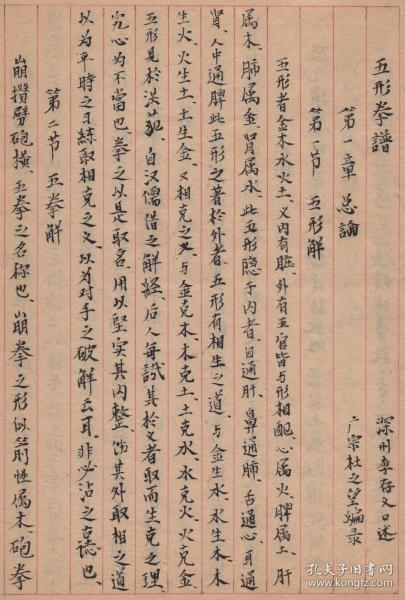 五形拳譜
第一章 总論
深州李存义口述
广宗杜之望編录
第一节 五形解
五形者金木水火土、义内有臟、外有五官皆与形相配心属火、脾属土、肝
属木、肺属金、肾属水、此五形隐于内者、目通肝、鼻通肺、舌通心、耳通
肾、人中通脾此五形之著於外者、五形有相生之道、与金生水、水生木、木
生火、火生土、土生金、又相克之义、与金克木、木克土、土克水、水克火、火克金
五形見於洪范、自汉儒借之解經、后人每譏其於义者取而生克之理
究心为不當也、拳之以是取名、用以堅实其内整、飭其外取相之道
以为平時之习練取相克之义、以为对手之破解云耳、非必沾之古誌也、
第二节 五拳解
崩攢劈砲横、五拳之名称也、崩拳之形似箭性属木、砲拳
孔夫子旧书网